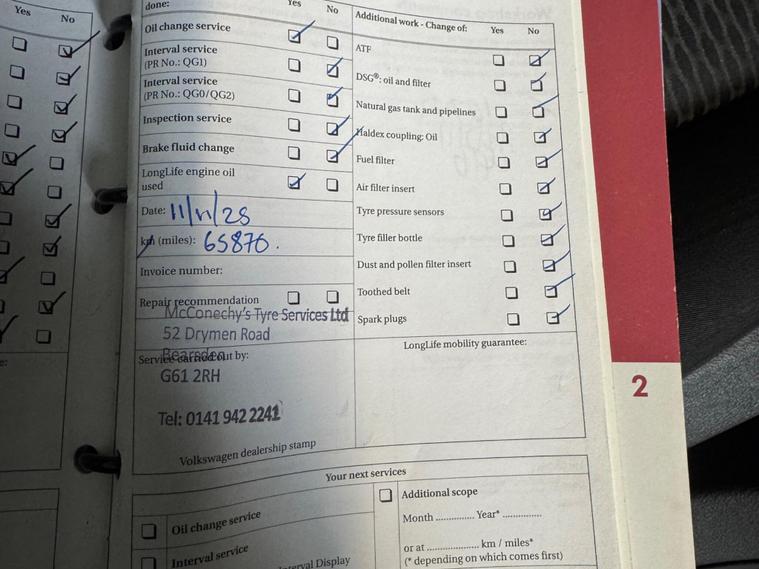 Yes No
done: Yes No
Oil change service
Interval service
(PR No.: QG1)
Interval service
(PR No.: QG0/QG2)
Inspection service
Brake fluid change
LongLife engine oil
used
Date: 11/11/25
km (miles): 65876.
Invoice number:
Repair recommendation
McConechy's Tyre Services Ltd
52 Drymen Road
Bearsden
Service carried out by:
G61 2RH
Tel: 0141 942 2241
Volkswagen dealership stamp
Additional work - Change of: Yes No
ATF
DSG®: oil and filter
Natural gas tank and pipelines
Haldex coupling: Oil
Fuel filter
Air filter insert
Tyre pressure sensors
Tyre filler bottle
Dust and pollen filter insert
Toothed belt
Spark plugs
LongLife mobility guarantee:
2
Your next services
Oil change service
Interval service
Interval Display
Additional scope
Month .............. Year* ..............
or at .................... km / miles*
(* depending on which comes first)